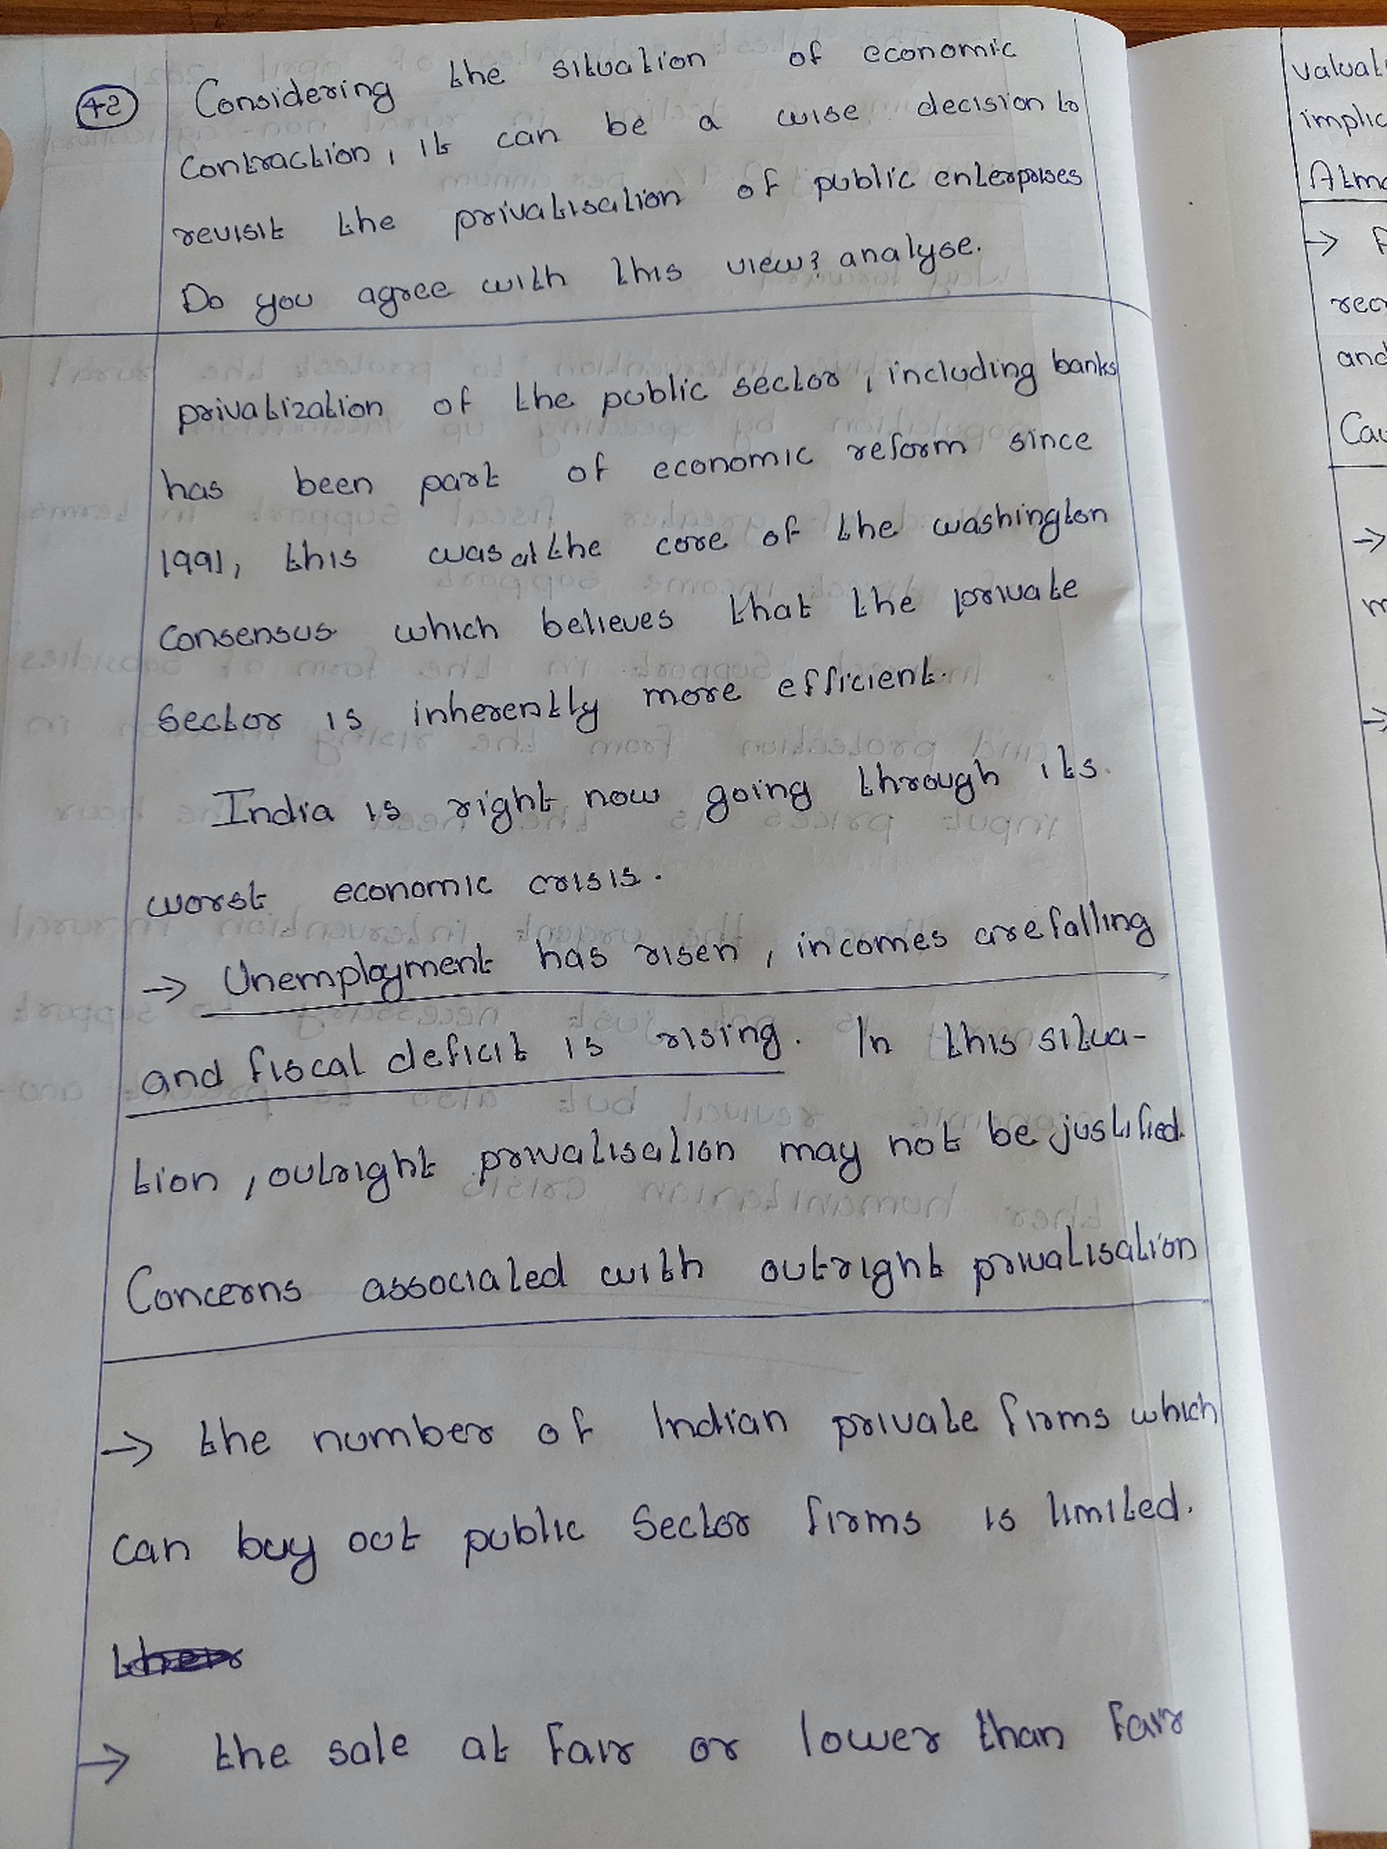 42 Considering the situation of economic
contraction, it can be a wise decision to
revisit the privatisation of public enterprises
Do you agree with this view? analyse.
privatization of the public sector, including banks
has been part of economic reform since
1991, this was at the core of the washington
consensus which believes that the private
sector is inherently more efficient.
India is right now going through its.
worst economic crisis.
→ Unemployment has risen, incomes are falling
and fiscal deficit is rising. In this situa-
tion, outright privatisation may not be justified.
Concerns associated with outright privatisation
→ the number of Indian private firms which
can buy out public sector firms is limited.
→ the sale at fair or lower than fair
valuat
implic
Atmo
→ F
recr
and
Cau
→
m
→